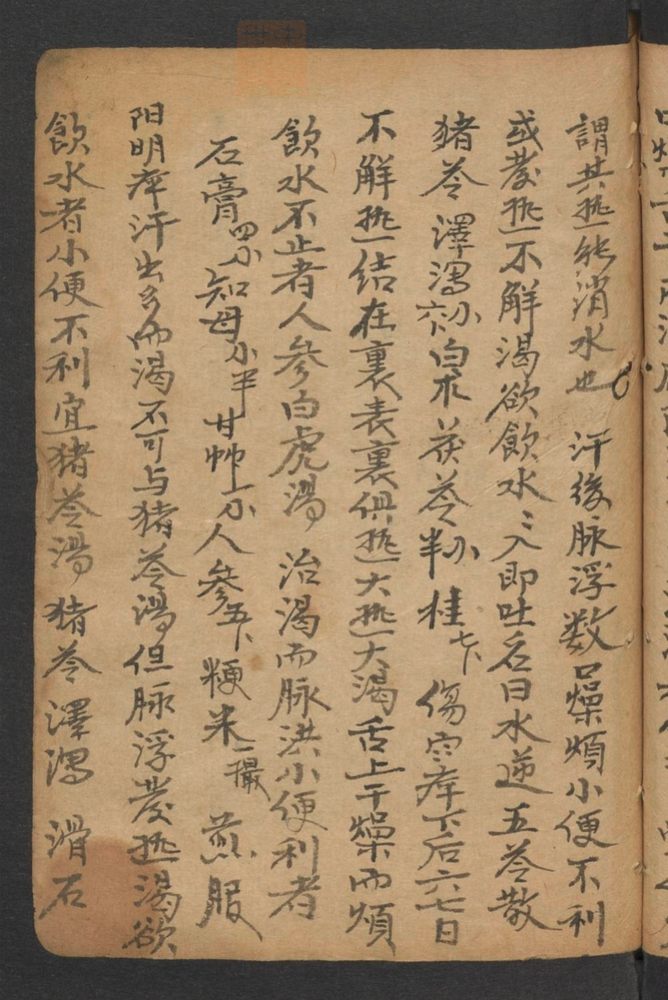 謂其热能消水也 汗後脉浮数口燥煩小便不利
或发热不解渴欲飲水〻入即吐名曰水逆五苓散
猪苓 澤瀉六小 白朮 茯苓半小 桂七卜 傷寒瘁下后六七日
不解热结在裏表裏俱热大热大渴舌上干燥而煩
飲水不止者人参白虎湯 治渴而脉洪小便利者
石膏四小 知母小半 甘艸一小 人参五卜 粳米一撮 煎服
阳明瘁汗出多而渴不可与猪苓湯但脉浮发热渴欲
飲水者小便不利宜猪苓湯 猪苓 澤瀉 滑石